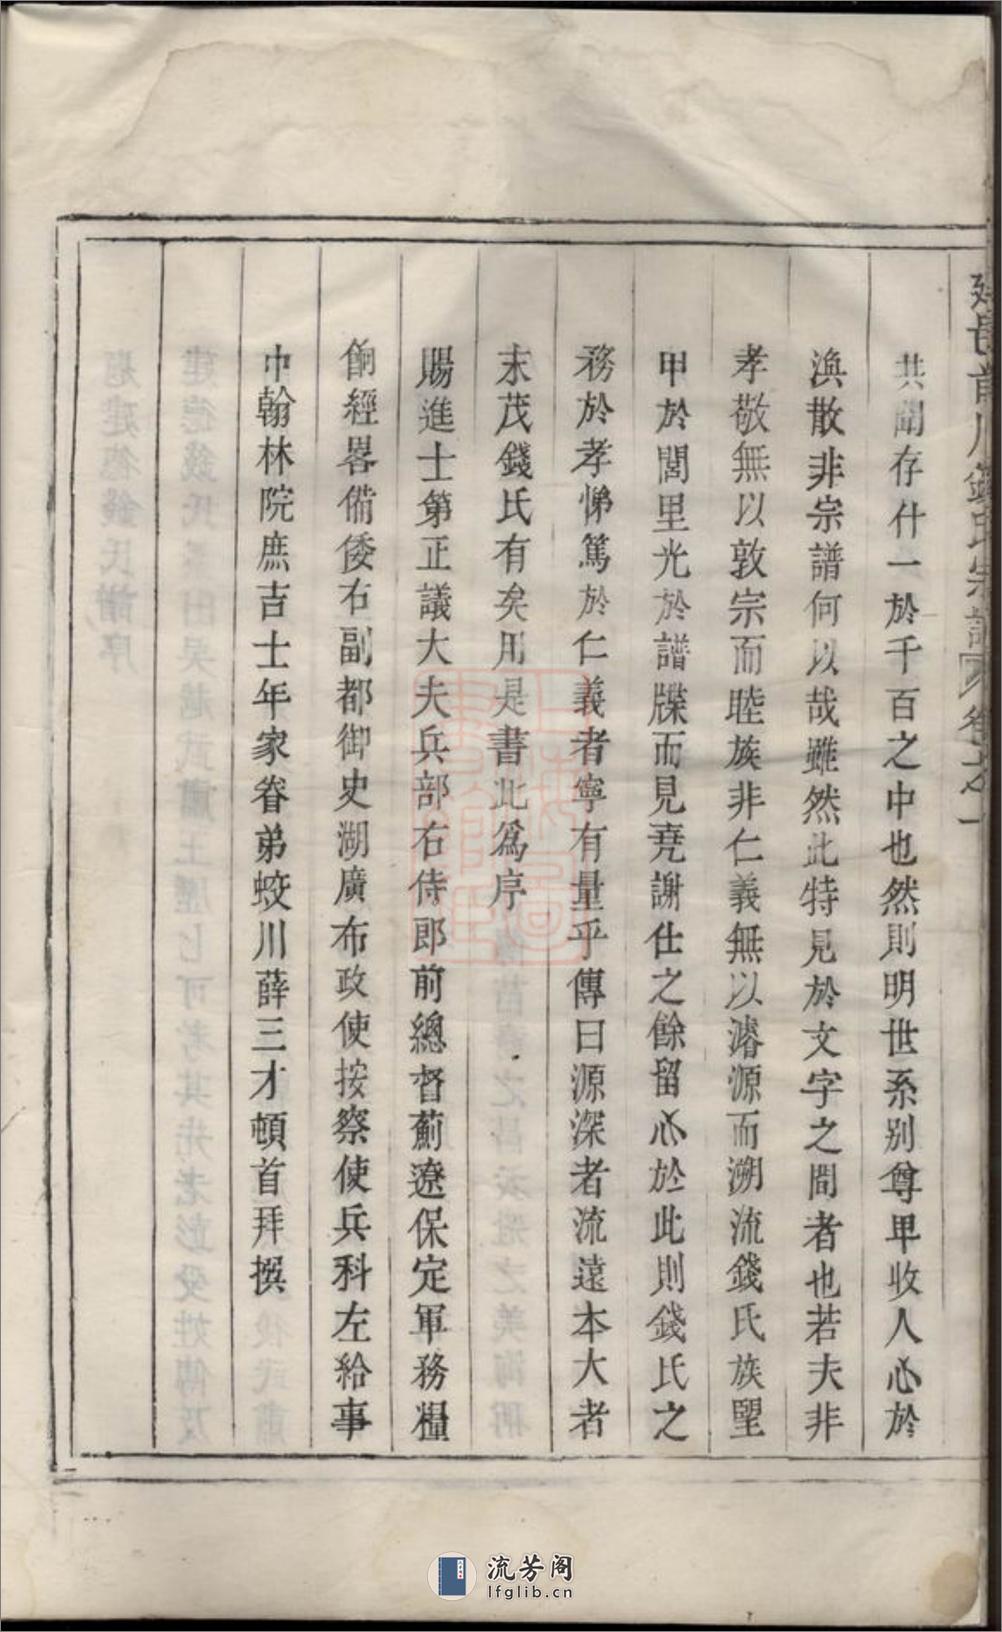 共聞存什一於千百之中也然則明世系别尊卑收人心於
渙散非宗譜何以哉雖然此特見於文字之間者也若夫非
孝敬無以敦宗而睦族非仁義無以濬源而溯流錢氏族望
甲於閭里光於譜牒而見堯謝仕之餘留心於此則錢氏之
務於孝悌篤於仁義者寧有量乎傳曰源深者流遠本大者
末茂錢氏有矣用是書此為序
賜進士第正議大夫兵部右侍郎前總督薊遼保定軍務糧
餉經畧備倭右副都御史湖廣布政使按察使兵科左給事
中翰林院庶吉士年家眷弟蛟川薛三才頓首拜撰
流芳阁
lfglib.cn